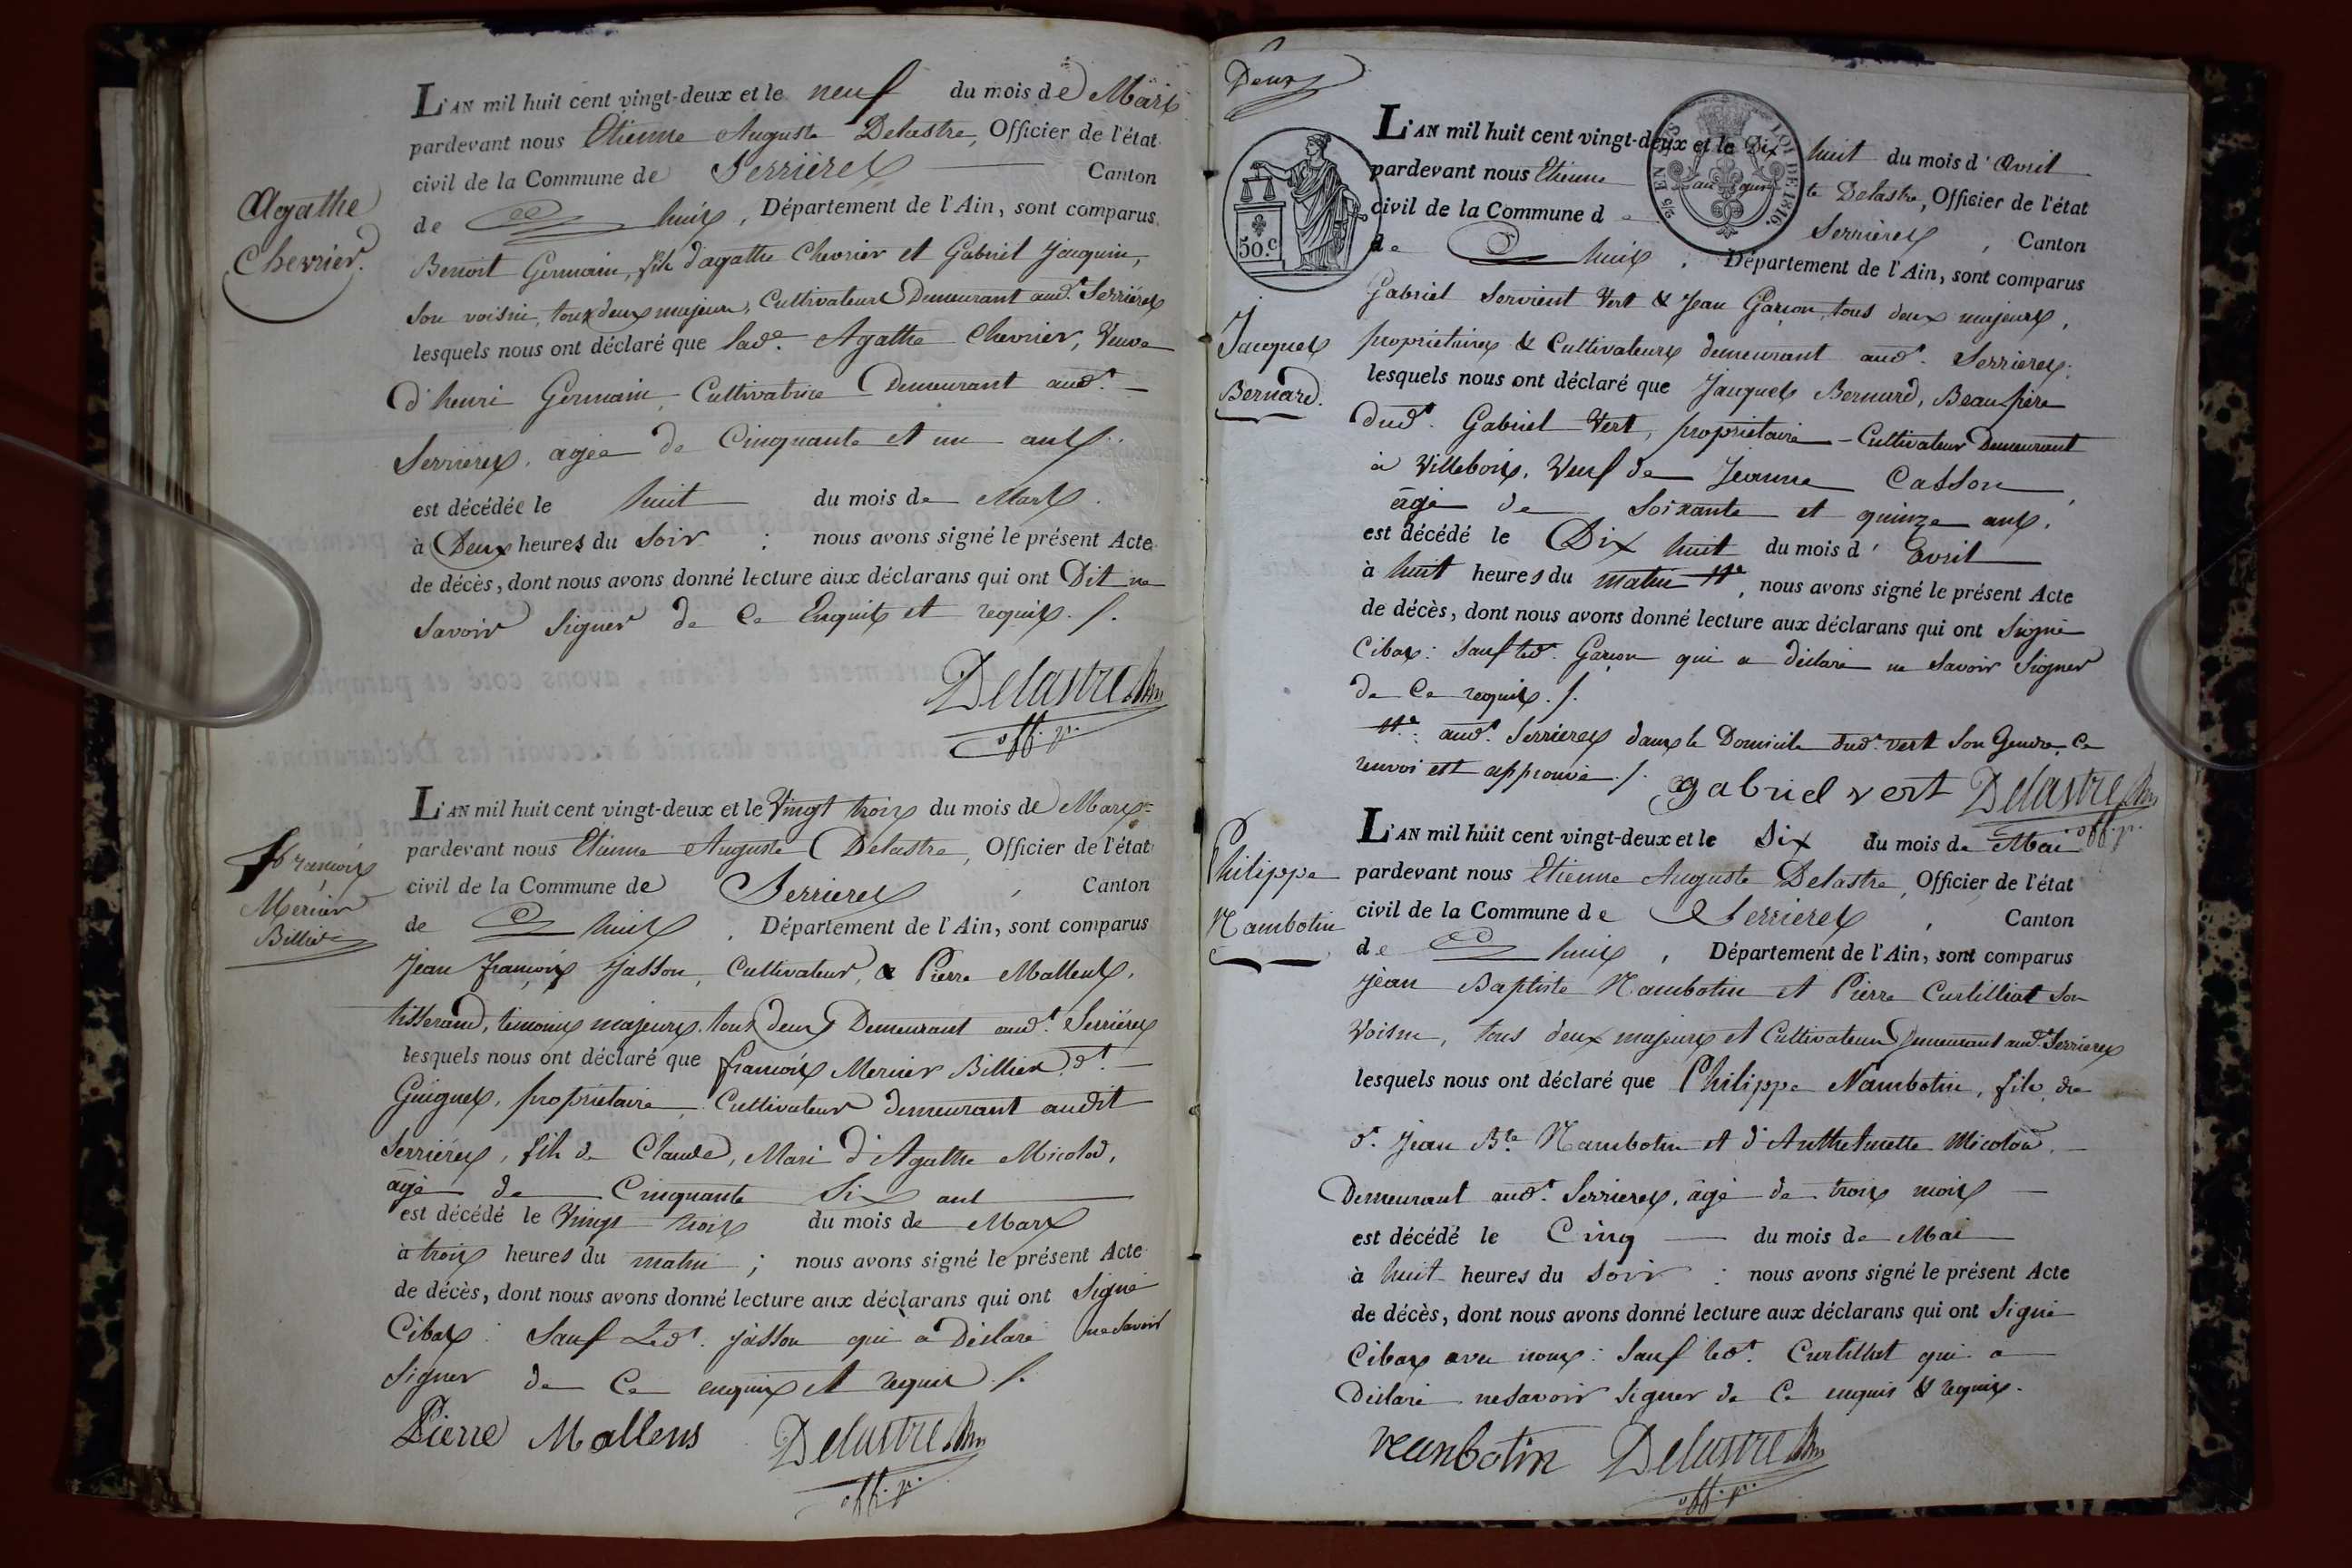 Agathe
Chevrier.
L'AN mil huit cent vingt-deux et le neuf du mois de Mars
pardevant nous Etienne Auguste Delastre, Officier de l'état
civil de la Commune de Serrieres Canton
de huis, Département de l'Ain, sont comparus
Benoit Germain, fils d'agathe Chevrier et Gabriel Jauquin,
son voisin, tous deux majeurs, Cultivateurs Demeurant aud.t Serrières
lesquels nous ont déclaré que lad.e Agathe Chevrier, Veuve
d'henri Germain, Cultivatrice Demeurant aud.t
Serrières, agée de Cinquante et un ans
est décédée le huit du mois de Mars
à Deux heures du Soir ; nous avons signé le présent Acte
de décès, dont nous avons donné lecture aux déclarans qui ont Dit ne
savoir signer de ce Enquis et requis ./.
Delastre
off. p.
françois
Mercier
Billiet
L'AN mil huit cent vingt-deux et le Vingt trois du mois de Mars
pardevant nous Etienne Auguste Delastre, Officier de l'état
civil de la Commune de Serrieres, Canton
de huis, Département de l'Ain, sont comparus
Jean françois Jasson, Cultivateur, & Pierre Mallens,
tisserand, temoins majeurs, tous deux Demeurant aud.t Serrières
lesquels nous ont déclaré que françois Mercier Billiet d.t
Guigues, propriétaire Cultivateur demeurant audit
Serrières, fils de Claude, Mari d'Agathe Micolod,
âgé de Cinquante Six ans
est décédé le Vingt trois du mois de Mars
à trois heures du matin ; nous avons signé le présent Acte
de décès, dont nous avons donné lecture aux déclarans qui ont Signé
Cibas : Sauf Led.t Jasson qui a Déclaré ne Savoir
Signer de Ce enquis et requis ./.
Pierre Mallens Delastre
off. p.
Deux
EN SUS
LOI DE 1816.
50.c
Jacques
Bernard.
L'AN mil huit cent vingt-deux et le Dix huit du mois d'Avril
pardevant nous Etienne auguste Delastre, Officier de l'état
civil de la Commune de Serrieres, Canton
de huis, Département de l'Ain, sont comparus
Gabriel Servient Vert & Jean Garçon, tous deux majeurs,
propriétaires & Cultivateurs demeurant aud.t Serrieres.
lesquels nous ont déclaré que Jacques Bernard, Beau père
dud.t Gabriel Vert, propriétaire - Cultivateur Demeurant
à Villebois, Veuf de Jeanne Casson,
âgé de Soixante et quinze ans,
est décédé le Dix huit du mois d'Avril
à huit heures du matin, nous avons signé le présent Acte
de décès, dont nous avons donné lecture aux déclarans qui ont Signé
Cibas : sauf led.t Garçon qui a déclaré ne Savoir Signer
de Ce requis ./.
aud.t Serrieres dans le Domicile dud.t Vert son Gendre, Ce
renvoi est approuvé ./. gabriel vert Delastre
off. p.
Philippe
Nambotin
L'AN mil huit cent vingt-deux et le Six du mois de Mai
pardevant nous Etienne Auguste Delastre, Officier de l'état
civil de la Commune de Serrieres, Canton
de huis, Département de l'Ain, sont comparus
Jean Baptiste Nambotin et Pierre Curtilliat Son
Voisin, tous deux majeurs et Cultivateurs Demeurant aud.t Serrieres
lesquels nous ont déclaré que Philippe Nambotin, fils de
d.t Jean B.te Nambotin et d'Anthelmette Micolod,
Demeurant aud.t Serrieres, âgé de trois mois
est décédé le Cinq du mois de Mai
à huit heures du soir : nous avons signé le présent Acte
de décès, dont nous avons donné lecture aux déclarans qui ont Signé
Cibas avec nous : Sauf led.t Curtilliat qui a
Déclaré ne savoir Signer de Ce enquis & requis.
Nambotin Delastre
off. p.